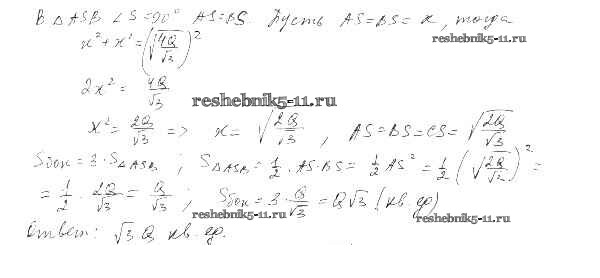 В △ASB ∠S=90° AS=BS. Пусть AS=BS=x, тогда
reshebnik5-11.ru
x² + x² = (√(4Q/√3))²
2x² = 4Q/√3
reshebnik5-11.ru
x² = 2Q/√3 => x = √(2Q/√3), AS=BS=CS=√(2Q/√3)
Sбок = 3·S△ASB ; S△ASB = 1/2 · AS·BS = 1/2 AS² = 1/2 (√(2Q/√2))² =
= 1/2 · 2Q/√3 = Q/√3 ; Sбок = 3· Q/√3 = Q√3 (кв.ед)
reshebnik5-11.ru reshebnik5-11.ru
Ответ: √3 Q кв.ед.